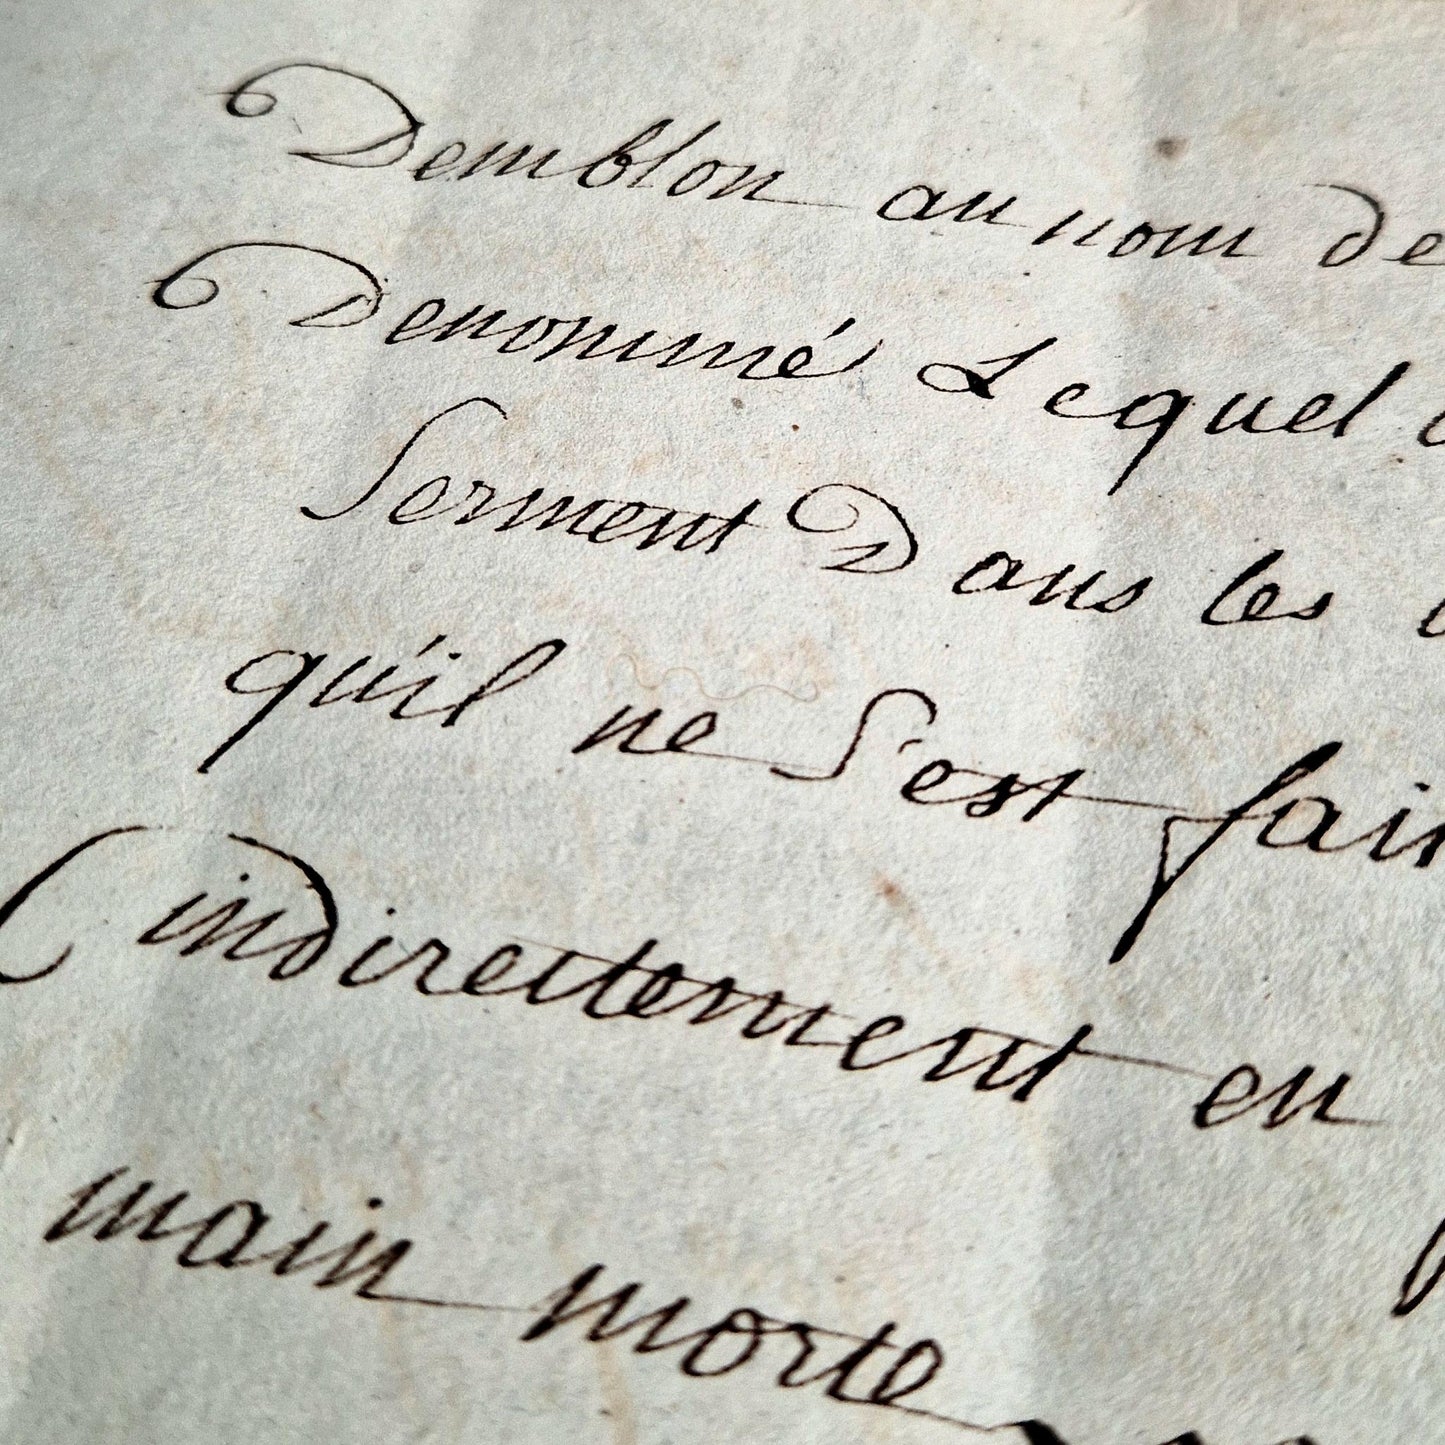 Demblon au nom de
Denommé Lequel
Serment Dans les
qu'il ne S'est fair
indirectement en
main morte